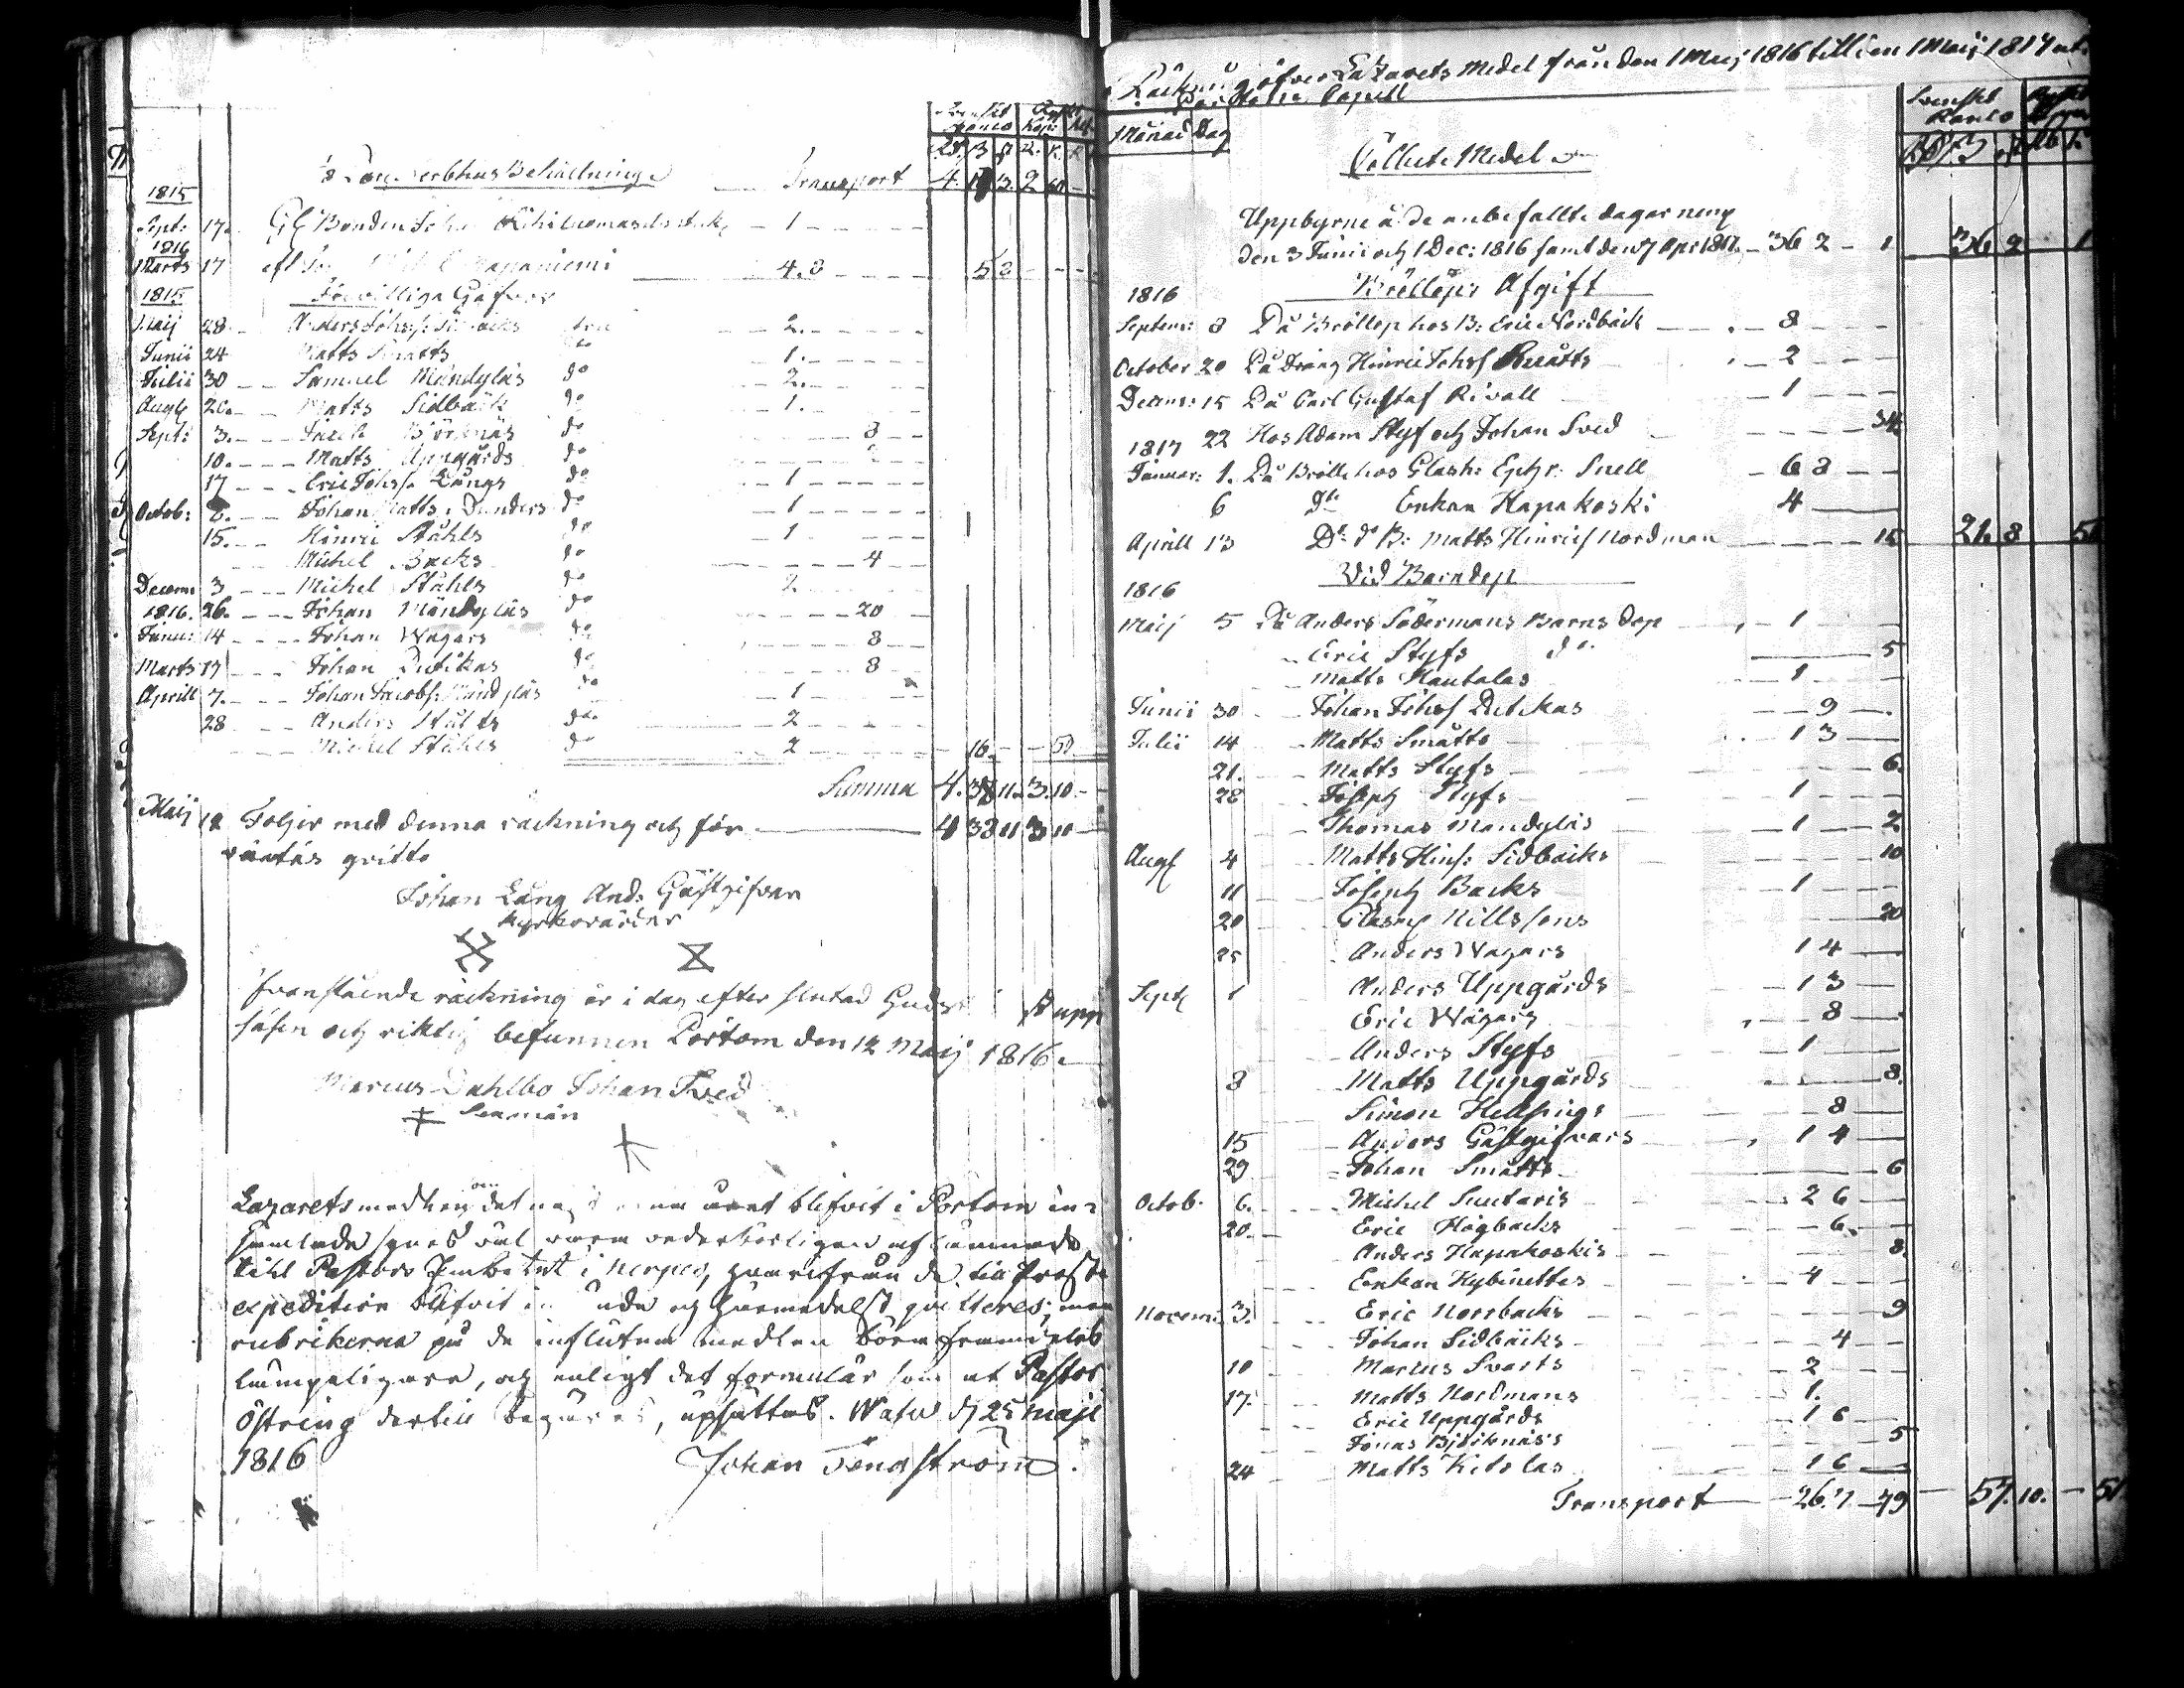 Svenskt Banco
Kop:
Rd. ß
Sterbhus Behållning Transport 4. 13. 2 60
1815
Sept: 17. Bonden Joh. 1
1816
Marts 17 4.8 5 8
1815
Frivillige Gåfvor
Maij 28 Anders Johss: 2.
Junii 24 Matts Smatts 1.
Julii 30 Samuel Mändylas do 2.
Aug 20. Matts Sidbäck do 1.
Sept: 3. Jacob Björknäs do 8
10. Matts Uppgårds do
17 Eric Johss Långs do 1
Octob: Johan Matts. Dunders do 1
15. Hinric Ståhls do 1
Michel Backs do 4
Decem 3 Michel Ståhls do 2.
1816. 26. Johan Mändyläs do 20
Janu: 14 Johan Wagars do 8
Marts 17 Johan Rutikas do 8
Aprill 7. Johan Jacobss: Mändyläs do 1
28 Anders Ståhls do 2
Michel Ståhls do 2 16.
Summa 4. 38 11. 3. 10
Maij 12 Följer med denna räckning och för 4 38 11 3 10
räntas qvitto
Johan Lång And: Gästgifvar
Kyrkovärdar
Fvanstående räckning är i dag efter slutad Guds upp
läsen och riktig befunnen Pörtom den 12 Maij 1816.
Marcus Dahlbo Johan Sved
Sexmän
Lazaretsmedlen om det una året blifvit i Pörtom in-
samlade synes väl vara vederbörligen aflämnade
till Pastors Embetet i Nerpes, hvarifrån de till Prost
expedition blifvit in ade och härmedelst qvitteres; men
rubrikerna på de influtna medlen böra framdeles
lämpeligare, och enligt det formulär som at Pastor
Östring dertill begäres, upsättas. Wasa d 25 Maji
1816 Johan Tengström.
Räkning öfver Lazarets Medel från den 1 Maij 1816 till den 1 Maij 1817 uti
Pörtom Capell
Månad Dag Svenskt Banco
Collect Medel
Uppbyrne å de anbefallte dagar neml
den 3 Junii och 1 Dec: 1816 samt den 7 Apr 1817. 36 2 1 36 2 1
1816 Bröllops Afgift
Septem: 8 På Bröllop hos B: Eric Nordbäck 8
October 20 På Dräng Hinric Johss Smatts 2
Decem: 15 På Carl Gustaf Rivall 1
22 Hos Adam Styf och Johan Sved 34.
1817
Januar: 1. På Bröll hos Glash: Ephr: Snell 6 8
6 do Enkan Hapakoski 4
Aprill 13 Do do B: Matts Hinrics Nordman 15 21. 8 51
1816 Vid Barndop
Maij 5 På Anders Södermans Barns dop 1
Eric Styfs do 5
Matts Hautalas 1
Junii 30 Johan Johss Rutikas 9
Julii 14 Matts Smatts 1 3
21. Matts Styfs 6.
28 Joseph Styfs 1
Thomas Mändyläs 1 2
Aug 4 Matts Hins: Sidbäcks 10
11 Joseph Backs 1
20 Glasm Nillssons 20
25 Anders Wagars 1 4
Sept 1 Anders Uppgårds 1 3
Eric Wägars 8
Anders Styfs 1
8 Matts Uppgårds 8.
Simon Hellsings 8
15 Anders Gästgifvars 1 4
29 Johan Smatts 6
Octob. 6. Michel Suutaris 2 6
20. Eric Högbacks 6.
Anders Hapakoskis 8.
Enkan Kybinettes 4
Novem: 3. Eric Norrbacks 9
Johan Sidbäcks 4
10 Marcus Svarts 2
17. Matts Nordmans 1.
Eric Uppgårds 1 6
Jonas Björknäs's 5
24 Matts Kitolas 1 6
Transport 26. 7 79 57. 10. 51